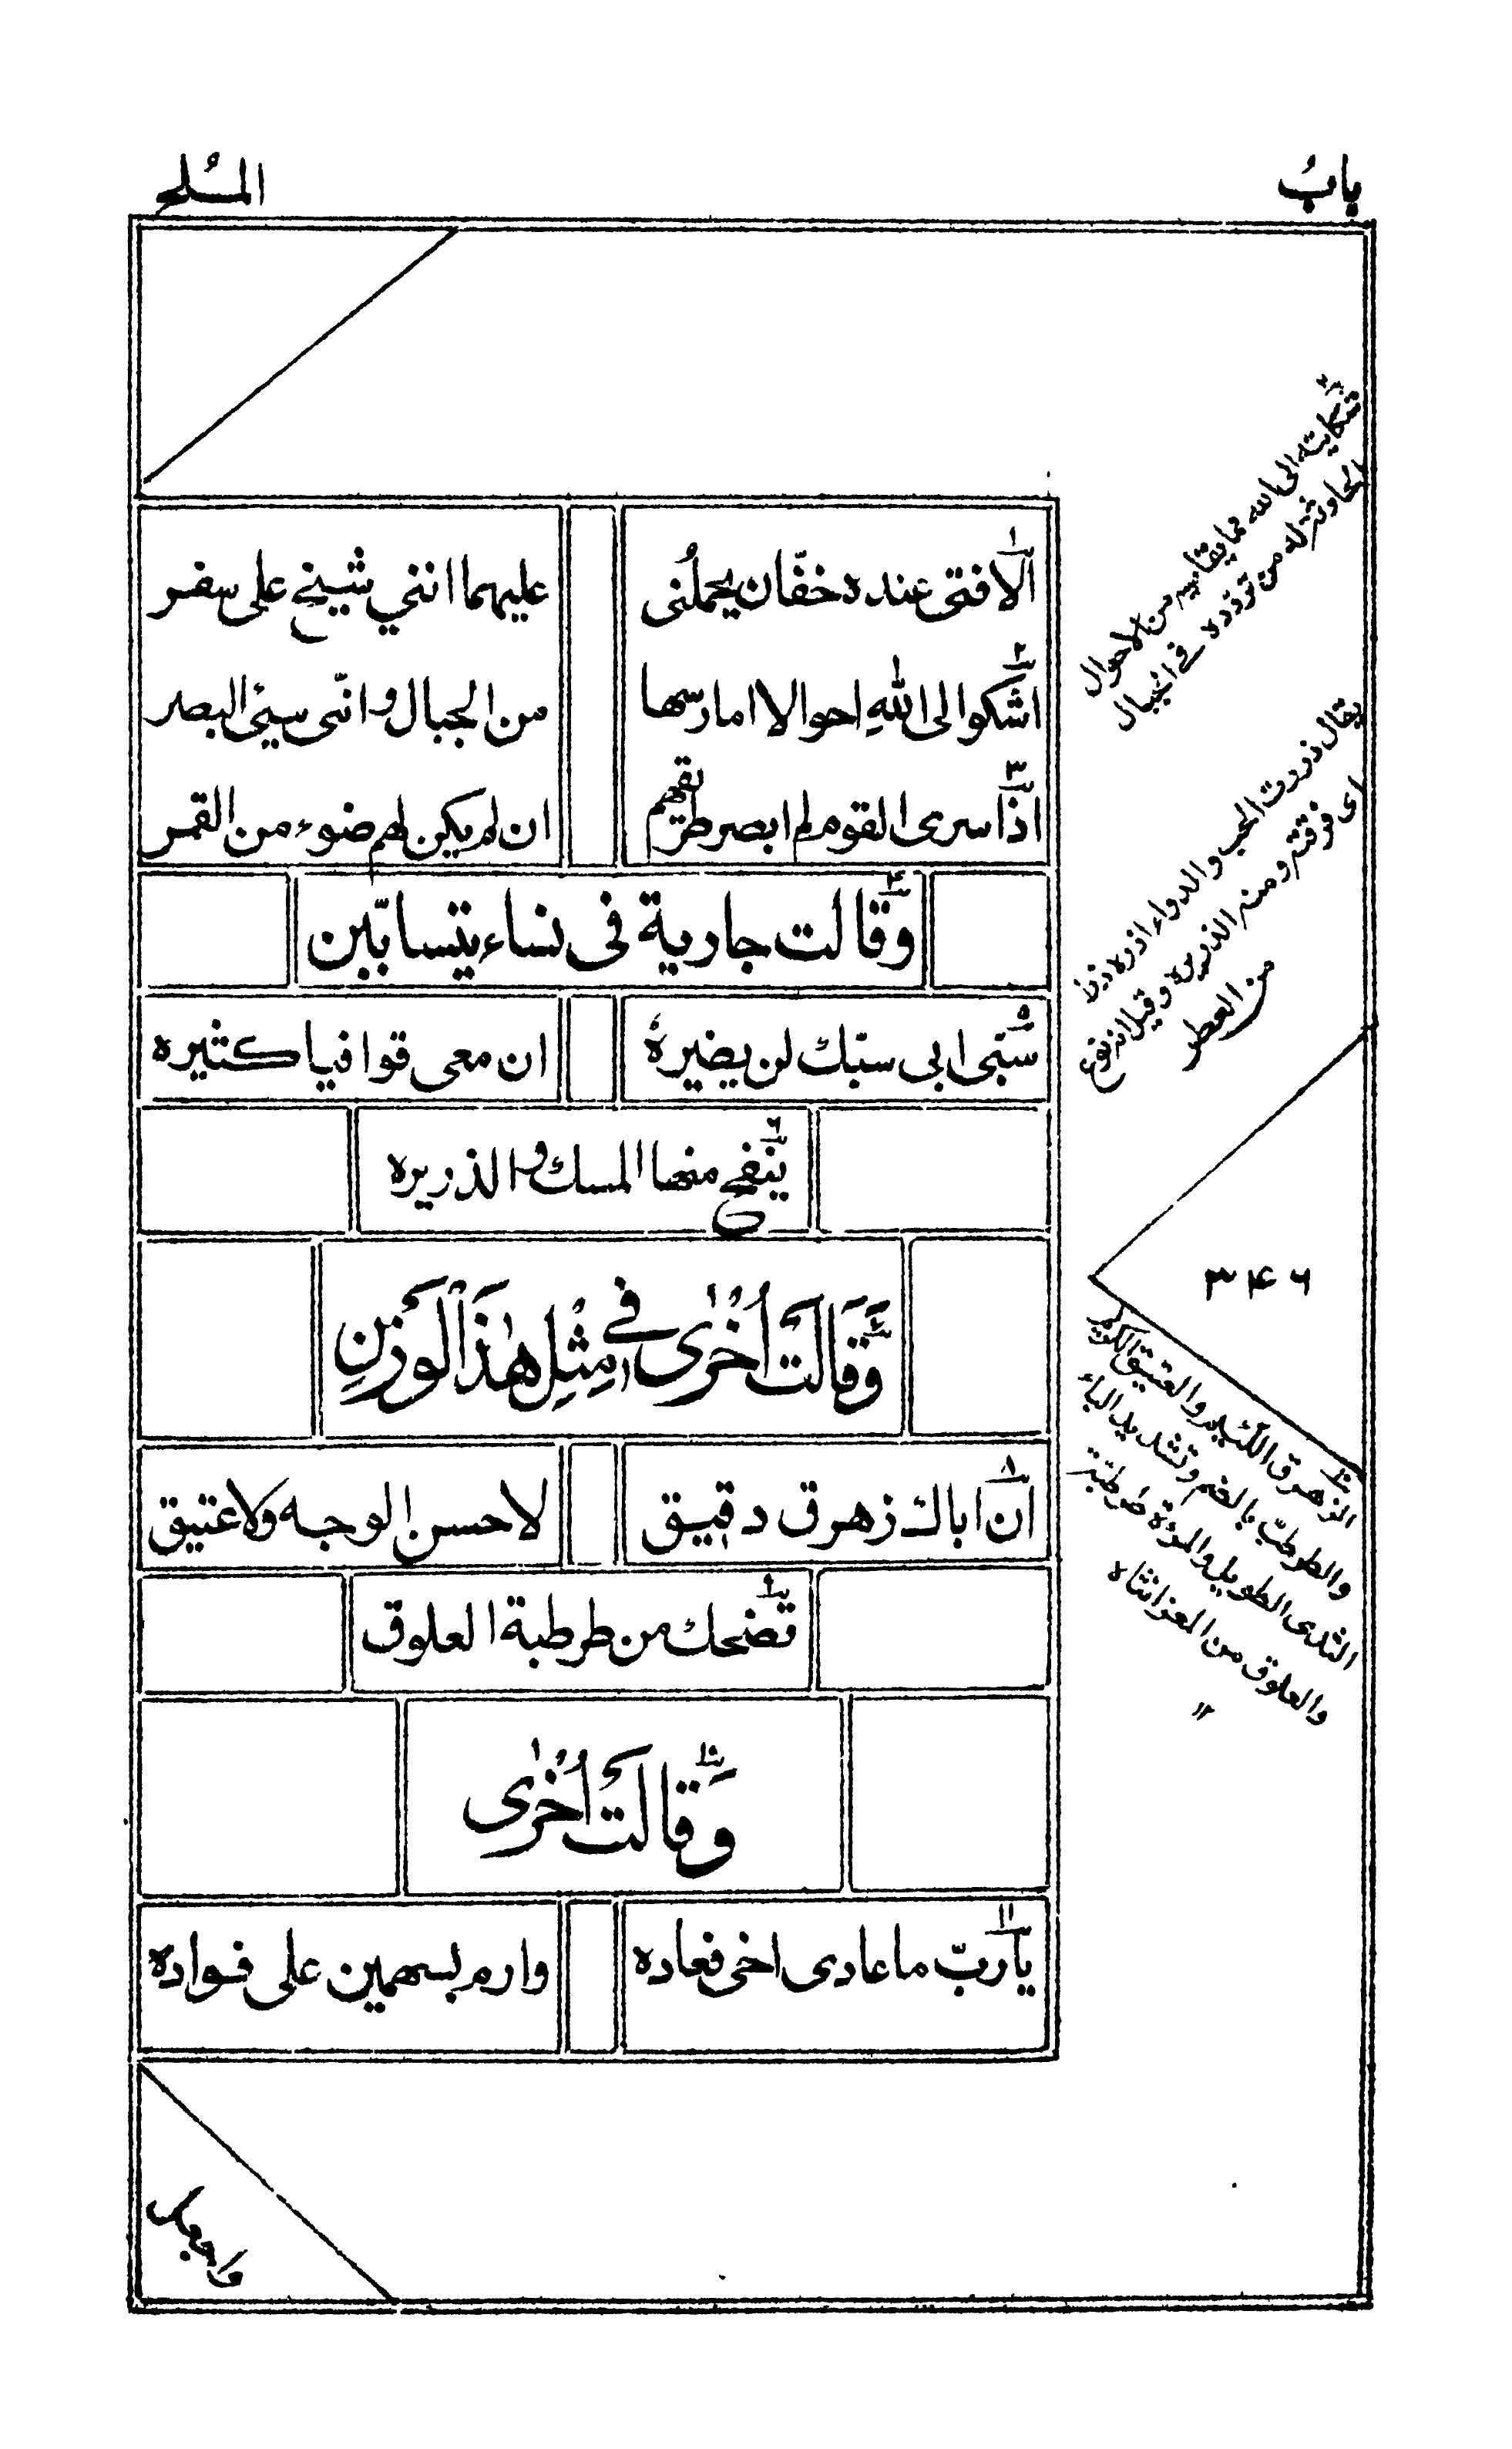 بابُ
المُلح
١ الا فتى عنده خفّان يحملُنى
عليهما اننى شيخ على سفر
٢ اشكوا الى اللهِ احوالا امارسها
من الجبال وانّى سيئ البصر
٣ اذا سرى القوم لم ابصر طريقهم
ان لم يكن لهم ضوء من القمر
٤ وقالت جارية فى نساء يتسابّين
٥ سبّى ابى سبّك لن يضيرهُ
ان معى قوافيا كثيره
٦ ينفح منها المسك والذريره
٧ وَقَالَتْ اُخْرٰى فِي مِثْلِ هٰذَا الْوَزْنِ
٨ ان اباك زهرق دقيق
لا حسن الوجه ولا عتيق
٩ تضحك من طرطبة العلوق
١٠ وَقَالَتْ اُخْرٰى
١١ يا ربّ ما عادى اخى فعاده
وارم بسهمين على فواده
٢ شكايته الى الله مما يقاسيه من الاحوال
الحاوثة له من تردده في الجبال
يقال ذررت الحب والدواء اذره ذرا
اى فرقته ومنه الذريره وقيل انه نوع
من العطر
٣٤٦
الزهرق اللئيم والعتيق الكريم
والطرطبّ بالضم وتشديد الباء
الثدى الطويل والمرءة طرطبّة
والعلوق من المعز انشاه
١٢